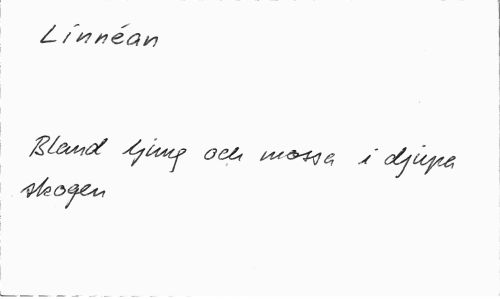 Linnéan
Bland ljung och mossa i djupa
skogen